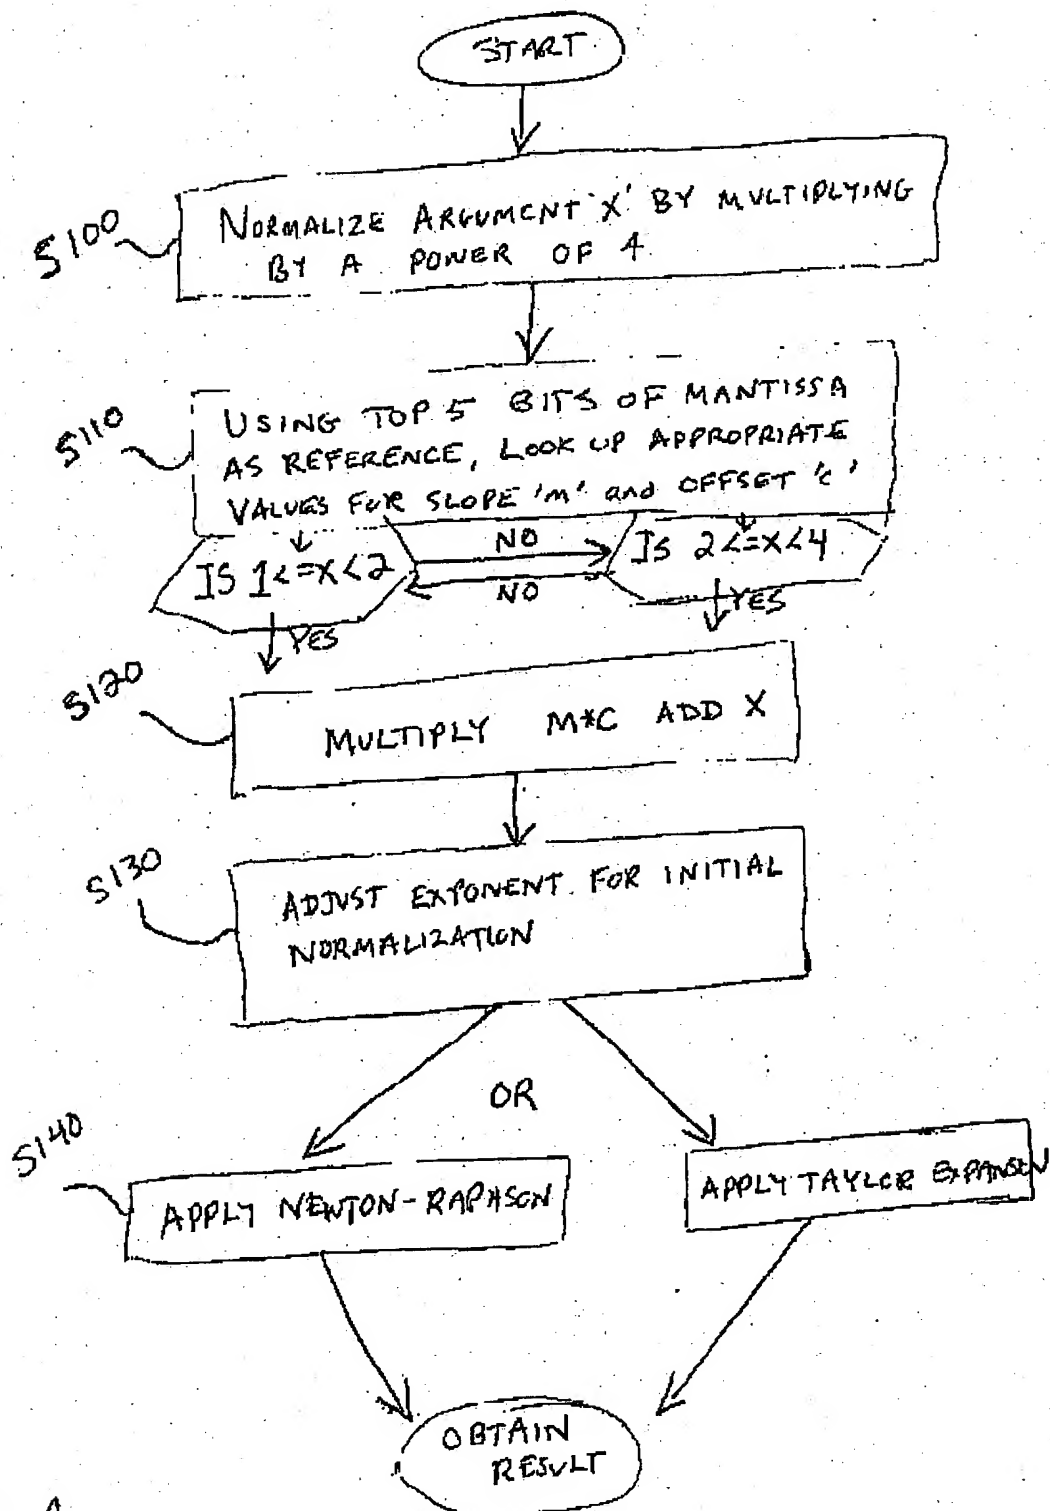 START
S100
NORMALIZE ARGUMENT 'X' BY MULTIPLYING
BY A POWER OF 4
S110
USING TOP 5 BITS OF MANTISSA
AS REFERENCE, LOOK UP APPROPRIATE
VALUES FOR SLOPE 'm' and OFFSET 'c'
IS 1<=X<2
NO
NO
IS 2<=X<4
YES
YES
S120
MULTIPLY M*C ADD X
S130
ADJUST EXPONENT FOR INITIAL
NORMALIZATION
OR
S140
APPLY NEWTON-RAPHSON
APPLY TAYLOR EXPANSION
OBTAIN
RESULT